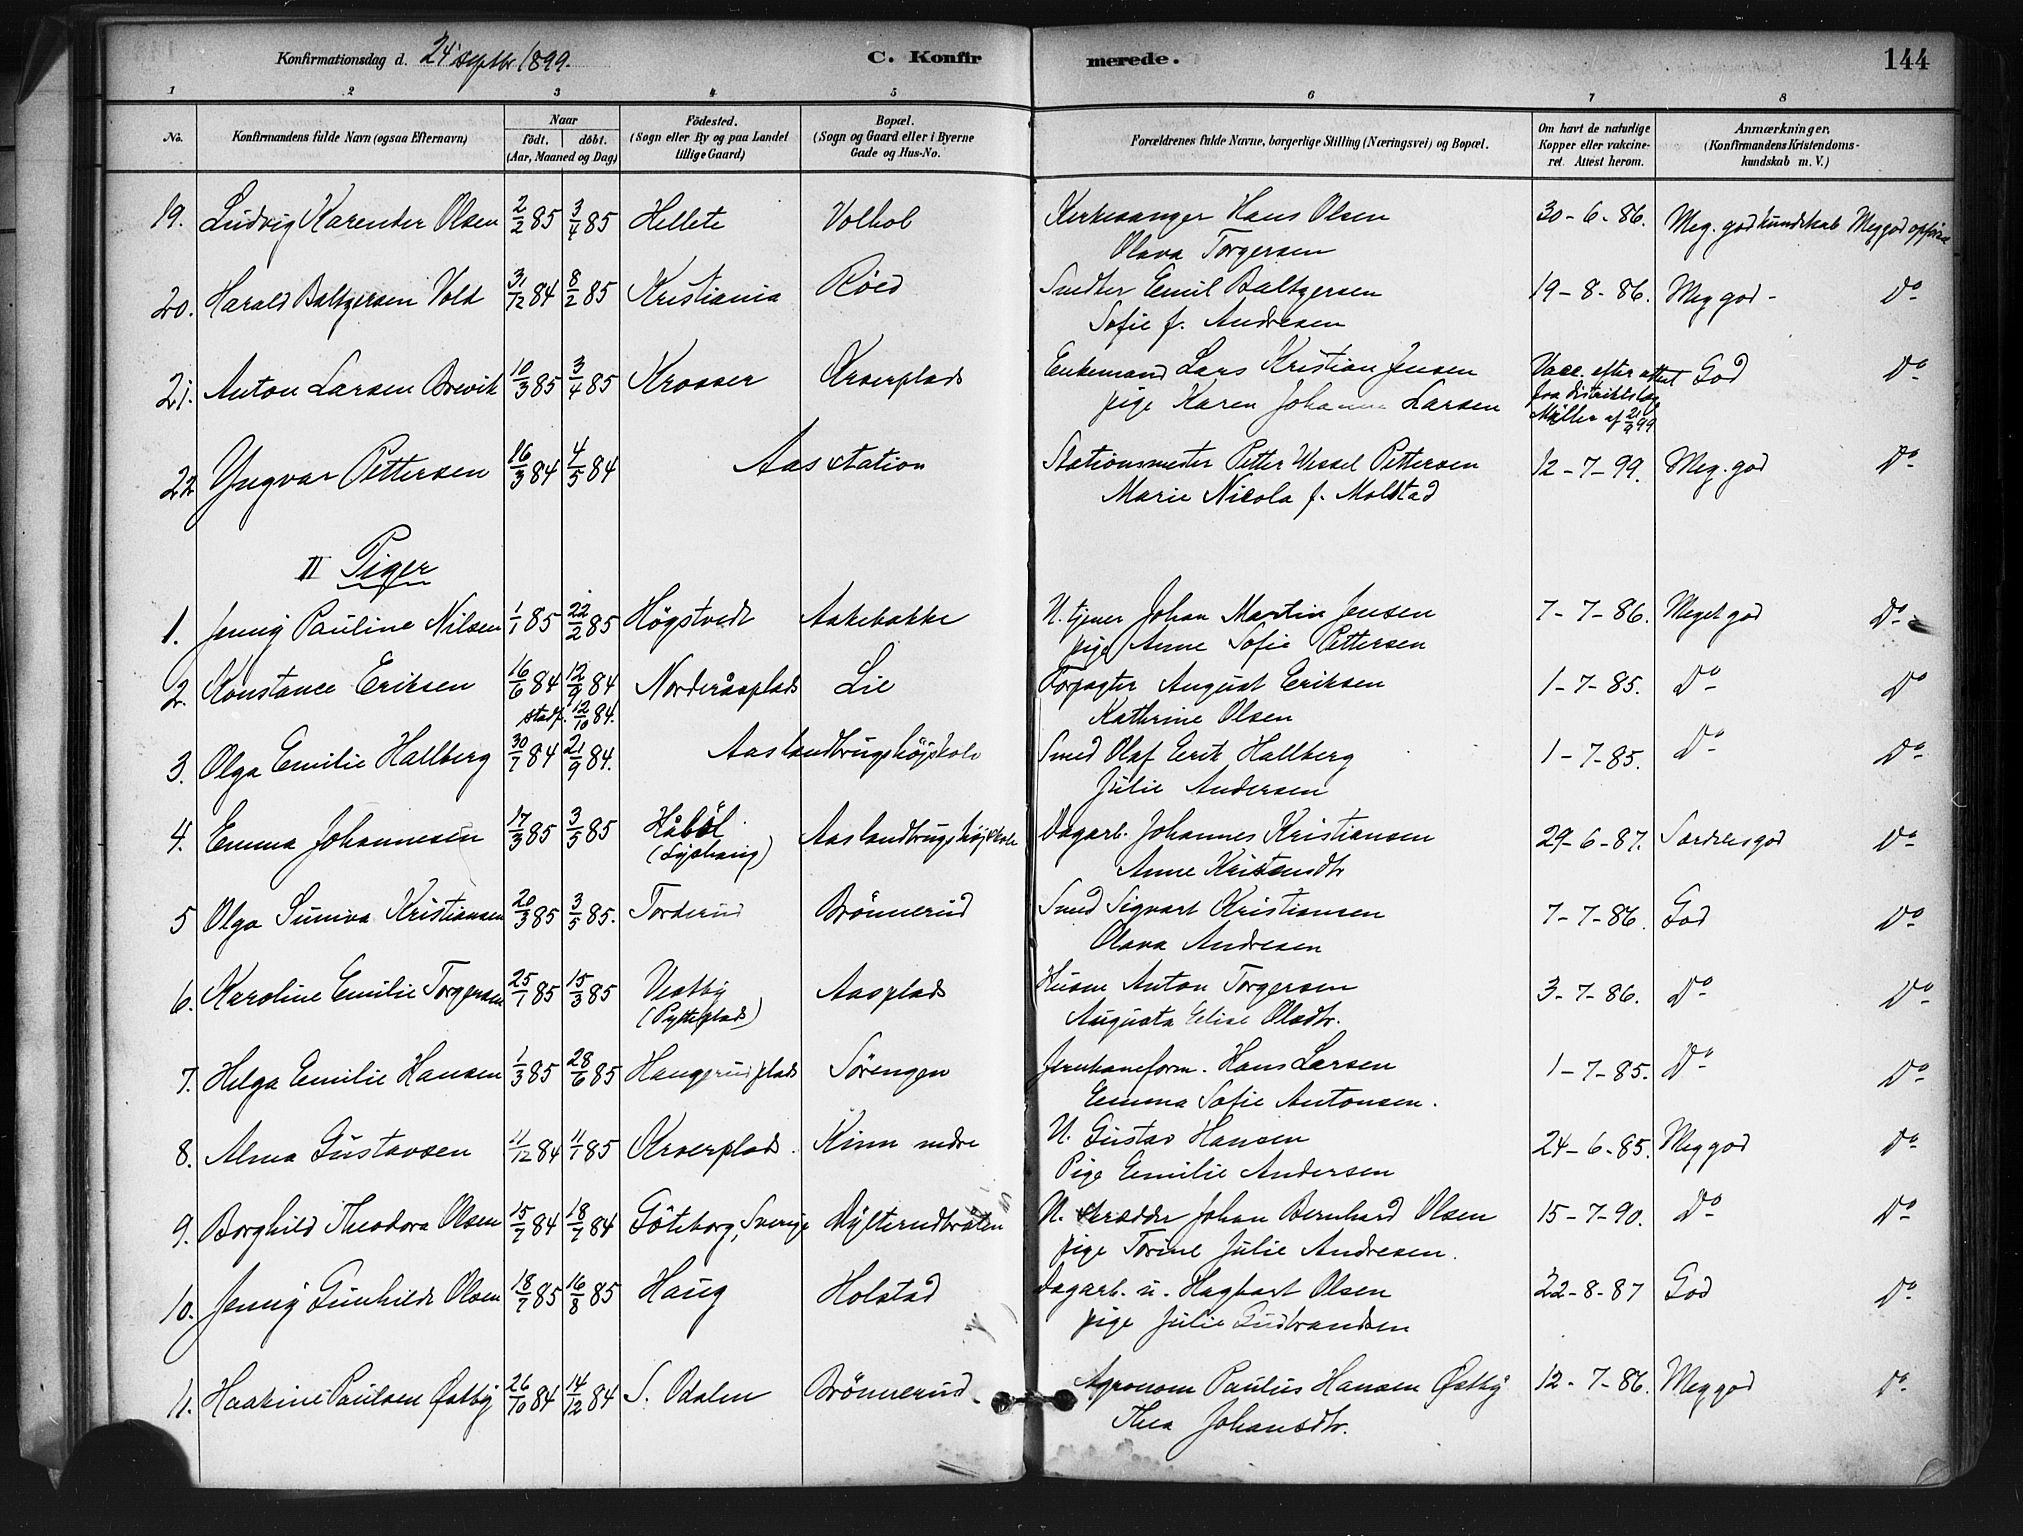 Konfirmationsdag d. 24 septbr 1899. C. Konfirmerede. 144
1 2 3 4 5 6 7 8
No. Konfirmandens fulde Navn (ogsaa Efternavn) Naar födt. döbt. (Aar, Maaned og Dag) Födested. (Sogn eller By og paa Landet tillige Gaard) Bopæl. (Sogn og Gaard eller i Byerne Gade og Hus-No. Forældrenes fulde Navne, borgerlige Stilling (Næringsvei) og Bopæl. Om havt de naturlige Kopper eller vakcineret. Attest herom. Anmærkninger. (Konfirmandens Kristendomskundskab m. V.)
19. Ludvig Karender Olsen 2/2 85 3/4 85 Hellete Volhol Kirkesanger Hans Olsen 30-6-86. Meg. god kundskab Meg god opförsel
Olava Torgersen
20. Harald Baltzersen Vold 31/12 84 8/2 85 Kristiania Röed Snedker Emil Baltzersen 19-8-86. Meg god - Do
Sofie f. Andresen
21. Anton Larsen Brevik 10/3 85 3/4 85 Krosser Krserplads Enkemand Lars Kristian Jensen Vacc. efter attest God Do
pige Karen Johanne Larsen fra distriktslæge
Müller af 21/9 99
22 Yngvar Pettersen 16/3 84 4/5 84 Aas station Stationsmester Petter Wessel Pettersen 12-7-99. Meg. god Do
Marie Nicola f. Molstad
II Piger
1. Jenny Pauline Nilsen 1/1 85 22/2 85 Högstvedt Aakebakke U. tjener Johan Martin Jensen 7-7-86. Meget god Do
pige Anne Sofie Pettersen
2. Konstance Eriksen 16/6 84 12/9 84 Norderåsplads Lie Forpagter August Eriksen 1-7-85. Do Do
stadf. 12/10 84. Kathrine Olsen
3. Olga Emilie Hallberg 30/7 84 21/9 84. Aas landbrugshöjskole Smed Olaf Erik Hallberg 1-7-85. Do Do
Julie Andersen
4. Emma Johannesen 17/3 85 3/5 85 Kåböl Aas landbrugshöjskole Dagarb. Johannes Kristiansen 29-6-87. Særdeles god Do
Anne Kristensdtr
5 Olga Suniva Kristiansen 20/3 85 3/5 85. Torderud Brönnerud Smed Sigvart Kristiansen 7-7-86. God Do
Olava Andresen
6. Karoline Emilie Torgersen 25/1 85 15/3 85 Vestby Aasplads Husm Anton Torgersen 3-7-86. Do Do
(Pytteplads) Augusta Elise Olsdtr.
7. Helga Emilie Hansen 1/3 85 28/6 85 Haugerudplads Sörengen Jernbaneform. Hans Larsen 1-7-85. Do Do
Emma Sofie Antonsen.
8. Alma Gustavsen 11/12 84 11/1 85 Krserplads. Kinn nedre U. Gustav Hansen 24-6-85. Meg god Do
Pige Emilie Andersen
9. Borghild Theodora Olsen 15/7 84 18/7 84 Göteborg, Sverige Dysterudbråten U. skrædder Johan Bernhard Olsen 15-7-90. Do Do
pige Torine Julie Andresen.
10. Jenny Gunhilde Olsen 18/7 85 16/8 85 Haug Holstad Dagarb. u. Hagbart Olsen 22-8-87 God Do
pige Julie Gudbrandsen
11. Haakine Paulsen Østby 26/10 84 14/12 84 S. Odalen Brönnerud. Agronom Paulus Hansen Østby 12-7-86. Meg god Do
Thea Johansdtr.